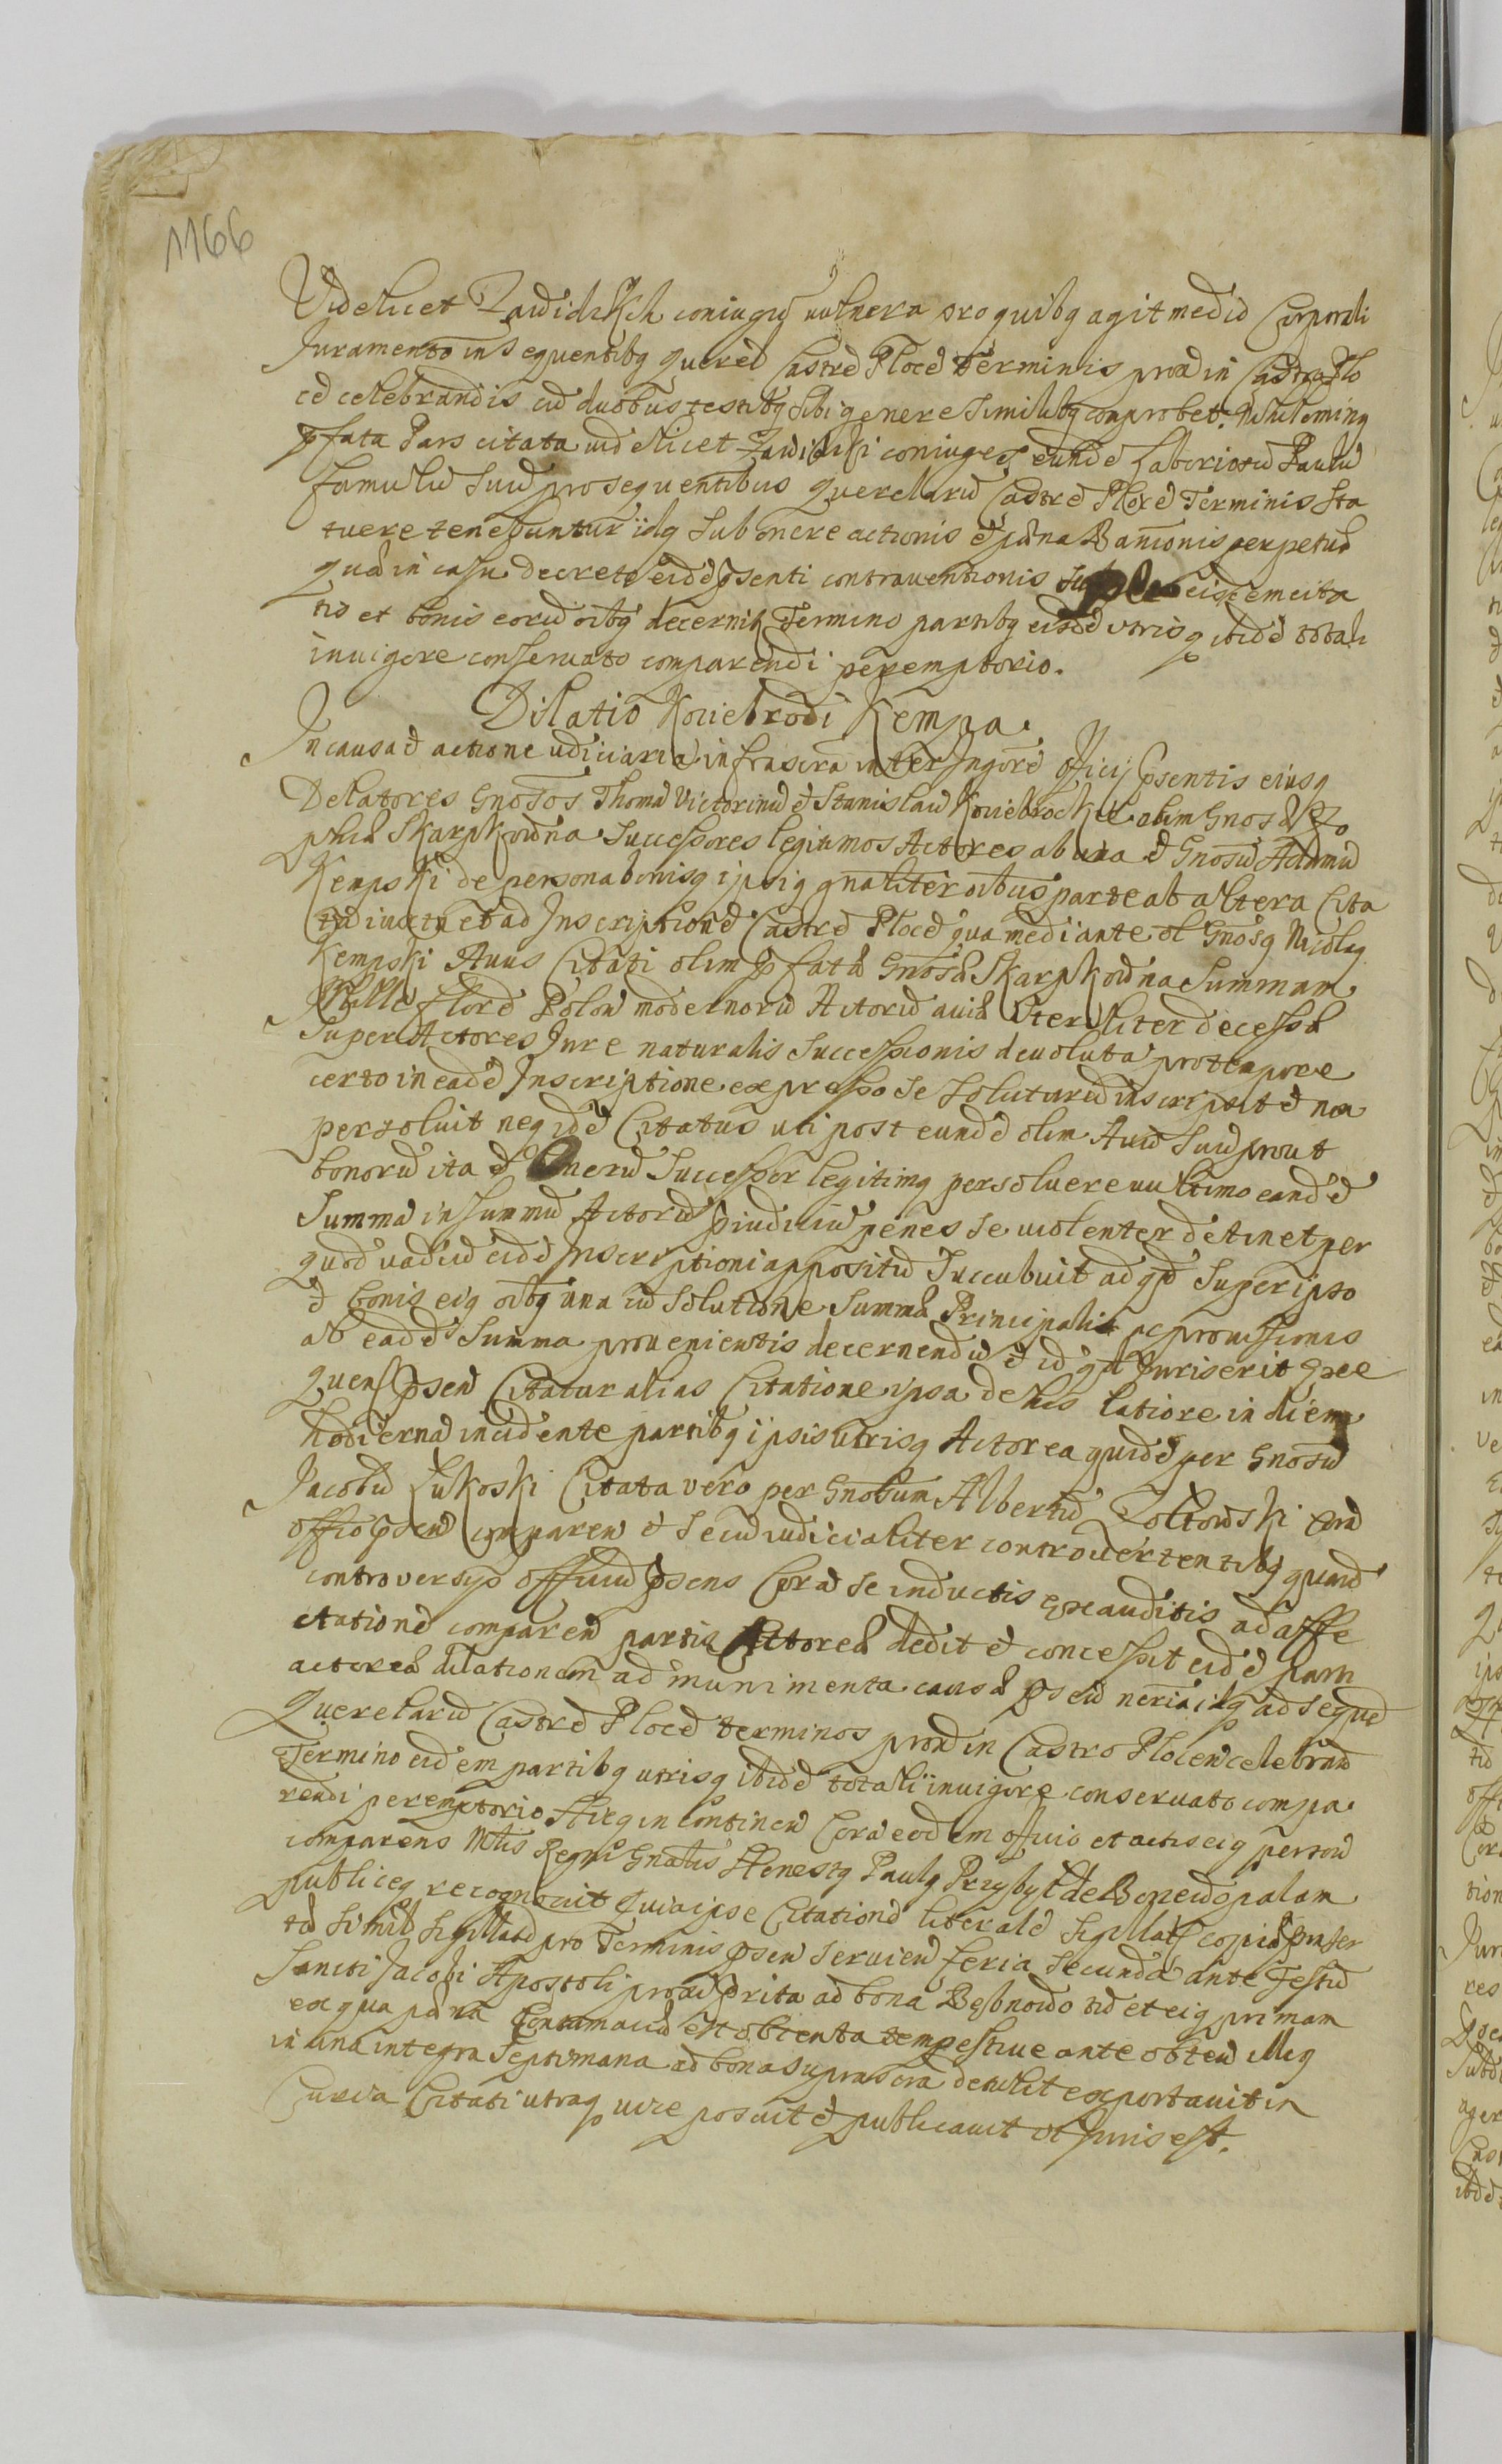 1166
Videlicet Zawidzkich coniugū vulnera pro quibq agit mediō Corporali
Juramento in sequentibq querel Castrē Plocē Terminis prox in Castro Plo
cē celebrandis cū duobus testibq sibi genere similibq comprobet. Nihilominq
pfata Pars citata videlicet Zawidzki coniuges eundē laboriosū Paulū
famulū suū pro sequentibus querelarū Castrē Plocē Terminis sta
tuere tenebuntur idq sub onere actionis et pœna Bannionis perpetuæ
quā in casu decreto eidē psenti contraventionis eisdem cita
tis et bonis eorū oibq decernit Termino partibq eisdē utrisq ibidē totali
in vigore conservato comparendi peremptorio.
Dilatio Koziebrodi Kempa.
In causa et actione iudiciaria infrascra inter Ingorē officij psentis eiusq
Delatores Gnosos Thomā Victorinū et Stanislaū Koziebrockie olim Gnosæ Zo
phiæ Skarpkowna Successores legitimos Actores ab una et Gnosū Adamū
Kempski de persona bonisq ipsiq gnaliter oibus parte ab altera Cita
tū iuxta et ad Inscriptionē Castrē Plocē qua mediante ol Gnosq Nicolaq
Kempski Avus Citati olim pfatæ Gnosæ Skarpkowna Summam
Mille florē Polon modernorū Actorū aviæ Steriliter decessæ
super Actores Jure naturalis successionis devoluta pro tempore
certo in eadē Inscriptione expresso se soluturū inscripsit et non
persoluit neq idē Citatus uti post eundē olim Avū suū prout
bonorū ita et Onerū Successor legitimq persoluere vult imo eandē
Summā in summū Actorū piudiciū penes se violenter detinet per
quod vadiū eidē Inscriptioni appositū succubuit ad qd super ipso
et bonis eiq oibq una cū solutione Summæ Principalis ac provisionis
ab eadē Summa provenientis decernendū et id qd Juris erit
psen Citatur alias Citatione ipsa de his latiore in diem
hodiernā incidente partibq ipsis utrisq Actorea quidē per Gnosū
Jacobū Lukoski Citata vero per Gnosum Albertū Zoltowski corā
offio psen comparen et secū iudicialiter controvertentibq quarū
controversijs officiū psens Corā se inductis exauditis ad affe
ctationē comparen partis Actoreæ dedit et concessit eidē parti
actoreæ dilationem ad munimenta causæ psen neria idq ad sequē
Querelarū Castrē Plocē terminos prox in Castro Plocen celebran
Termino eidem partibq utrisq ibidē totali in vigore conservato compa
rendi peremptorio Hicq in continen Corā eodem officio et actis eiq person
comparens Mtis Regni Gnalis Honestq Paulq Przybyl de palam
publiceq recognovit Quia ipse Citationē literalē sigillat copiā
simul sigillatā pro Terminis psen servien feria secunda ante Festū
Sancti Jacobi Apostoli prox prita ad bona et eiq primam
ex qua pœna Contumaciæ est obtenta tempestive ante obten illiq
in una integra septimana ad bona suprascra detulit exportavit in
Curia Citati utraq vice posuit et publicavit ut Juris est.